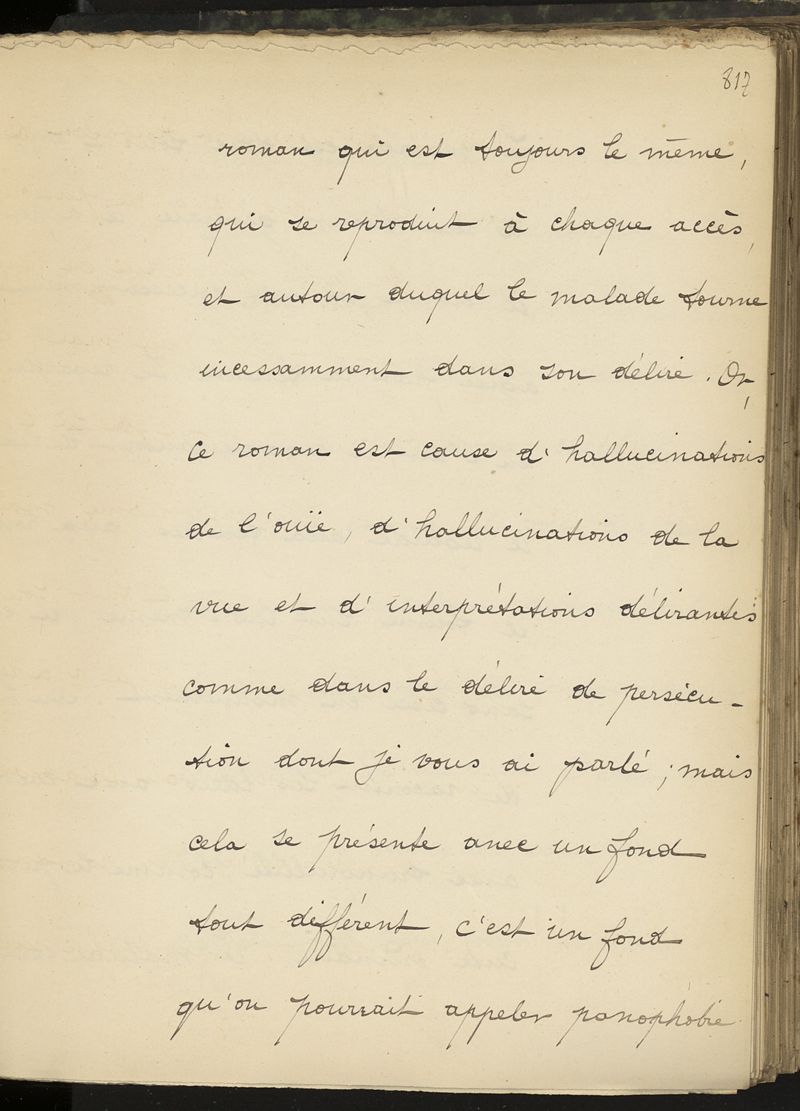 817
roman qui est toujours le même,
qui se reproduit à chaque accès,
et autour duquel le malade tourne
incessamment dans son délire. Or,
ce roman est cause d'hallucinations
de l'ouïe, d'hallucinations de la
vue et d'interprétations délirantes
comme dans le délire de persécu-
tion dont je vous ai parlé ; mais
cela se présente avec un fond
tout différent, c'est un fond
qu'on pourrait appeler panophobie